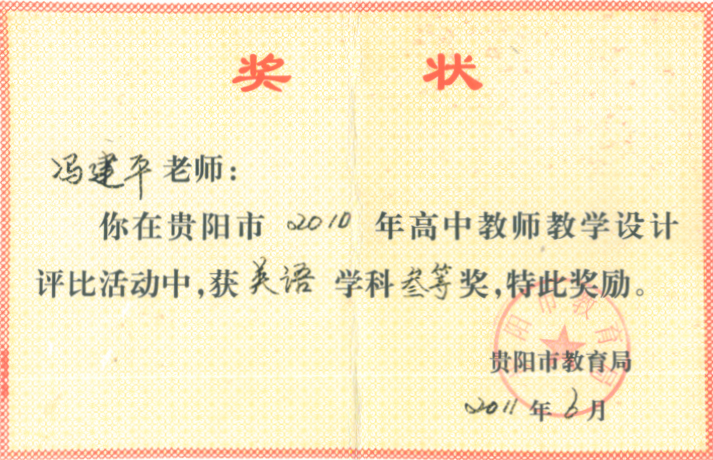 奖 状
冯建平老师：
你在贵阳市 2010 年高中教师教学设计
评比活动中，获英语 学科叁等奖，特此奖励。
贵阳市教育局
2011 年 6 月